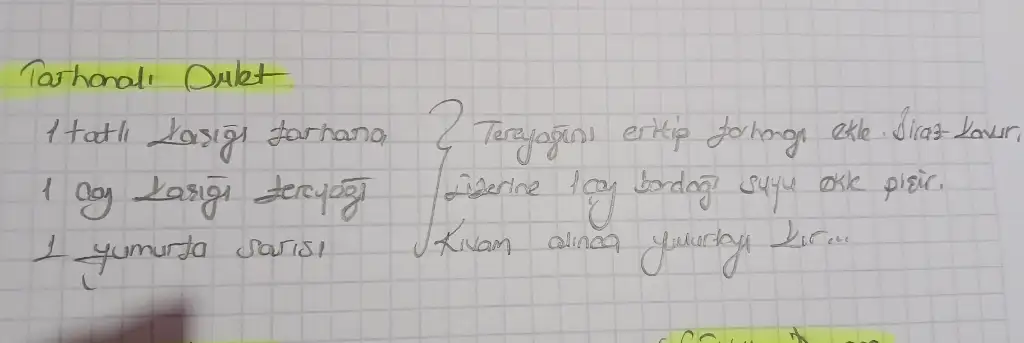 Tarhanalı Omlet
1 tatlı kaşığı tarhana
1 çay kaşığı tereyağı
1 yumurta sarısı
Tereyağını eritip tarhanayı ekle. Biraz kavur.
Üzerine 1 çay bardağı suyu ekle pişir.
Kıvam alınca yumurtayı kır...